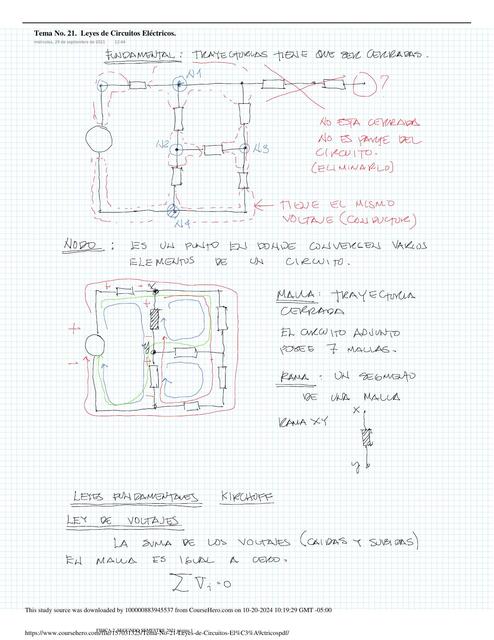 Tema No. 21. Leyes de Circuitos Eléctricos.
miércoles, 29 de septiembre de 2021 12:44
FUNDAMENTAL: TRAYECTORIAS TIENE QUE SER CERRADAS.
N1
?
NO ESTA CERRADA
NO ES PARTE DEL
CIRCUITO.
(ELIMINARLO)
N2
N3
N4
TIENE EL MISMO
VOLTAJE (CONDUCTOR)
NODO: ES UN PUNTO EN DONDE CONVERGEN VARIOS
ELEMENTOS DE UN CIRCUITO.
+ -
X
+
-
MALLA: TRAYECTORIA
CERRADA
EL CIRCUITO ADJUNTO
POSEE 7 MALLAS.
RAMA: UN SEGMENTO
DE UNA MALLA
RAMA XY
X
y
LEYES FUNDAMENTALES KIRCHOFF
LEY DE VOLTAJES
LA SUMA DE LOS VOLTAJES (CAIDAS Y SUBIDAS)
EN MALLA ES IGUAL A CERO.
∑Vi = 0
This study source was downloaded by 100000883945537 from CourseHero.com on 10-20-2024 10:19:29 GMT -05:00
https://www.coursehero.com/file/157031325/Tema-No-21-Leyes-de-Circuitos-El%C3%A9ctricospdf/